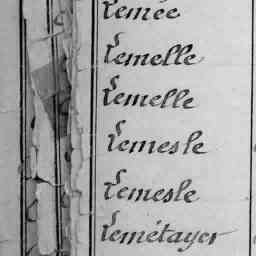 Lemée
Lemelle
Lemelle
Lemesle
Lemesle
Lemétayer